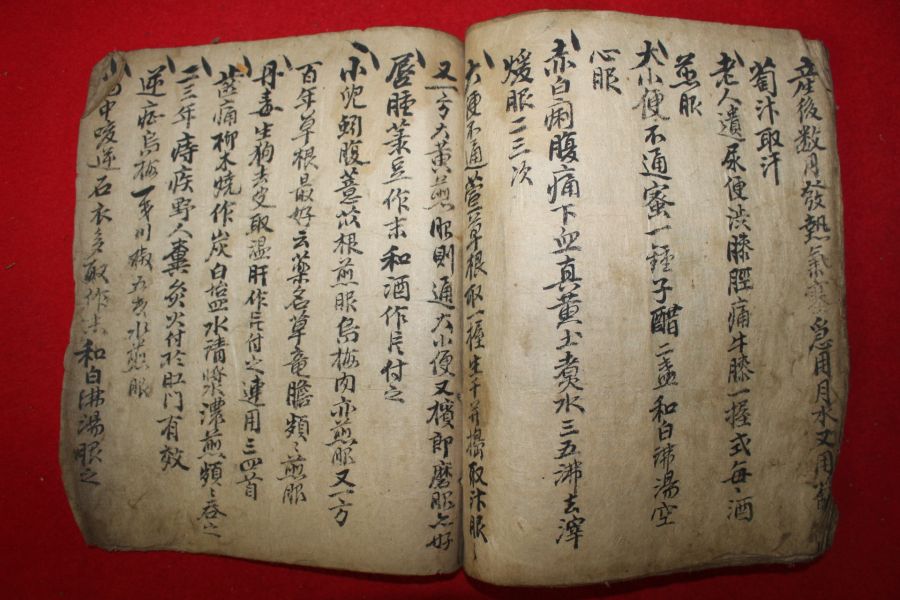 産後数月發熱氣 急用月水又用
萄汁取汗
老人遺尿便澁膝脛痛牛膝一握式每々酒
煎服
大小便不通蜜一鍾子醋二盞和白沸湯空
心服
赤白痢腹痛下血真黄土煮水三五沸去滓
煖服二三次
大便不通萱草根取一握生干并搗取汁服
又一方大黄煎服則通大小便又檳郎磨服亦好
唇腫菉豆作末和酒作片付之
小児蛔腹薏苡根煎服烏梅肉亦煎服又一方
百年草根最好云藥名草竜膽頻々煎服
丹毒生狗去皮取温肝作片付之連用三四首
齒痛柳木燒作炭白塩水清將濃煎頻々吞之
二三年痔疾野人糞灸火付於肛门有效
逆症烏梅一 川椒九 水煎服
中咳逆石衣多取作末和白沸湯服之